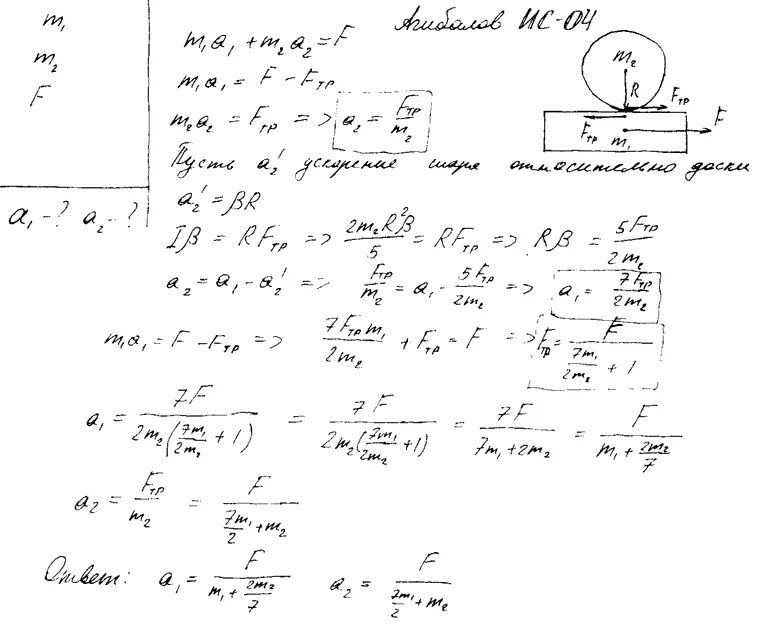 Агибалов ИС-04
m₁
m₂
F
a₁ - ? a₂ - ?
m₁a₁ + m₂a₂ = F
m₁a₁ = F - Fтр
m₂a₂ = Fтр => a₂ = Fтр/m₂
m₂
R
Fтр
F
Fтр
m₁
Пусть a₂' ускорение шара относительно доски
a₂' = βR
Iβ = RFтр => 2m₂R²β/5 = RFтр => Rβ = 5Fтр/2m₂
a₂ = a₁ - a₂' => Fтр/m₂ = a₁ - 5Fтр/2m₂ => a₁ = 7Fтр/2m₂
m₁a₁ = F - Fтр => 7Fтр m₁/2m₂ + Fтр = F => Fтр = F/(7m₁/2m₂ + 1)
a₁ = 7F/(2m₂(7m₁/2m₂ + 1)) = 7F/(2m₂(7m₁/2m₂ + 1)) = 7F/(7m₁ + 2m₂) = F/(m₁ + 2m₂/7)
a₂ = Fтр/m₂ = F/(7m₁/2 + m₂)
Ответ: a₁ = F/(m₁ + 2m₂/7) a₂ = F/(7m₁/2 + m₂)